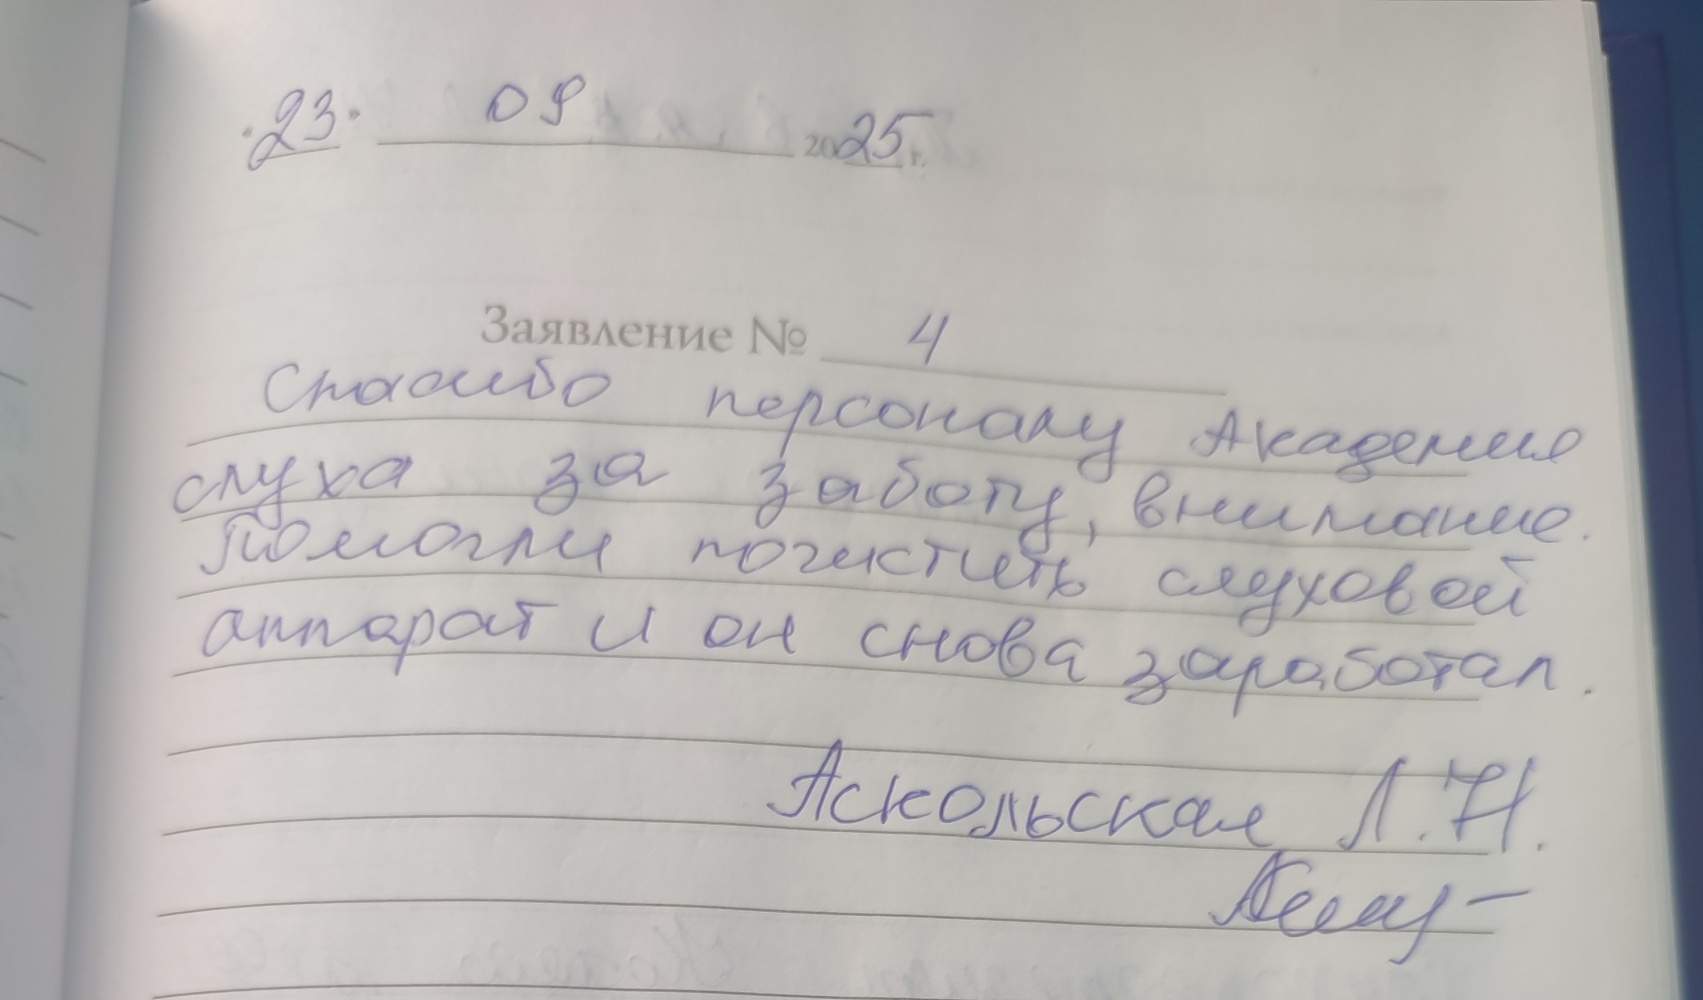 "23" 09 2025 г.
Заявление № 4
Спасибо персоналу Академия
слуха за заботу, внимание.
Помогли почистить слуховой
аппарат и он снова заработал.
Аскольская Л.Н.